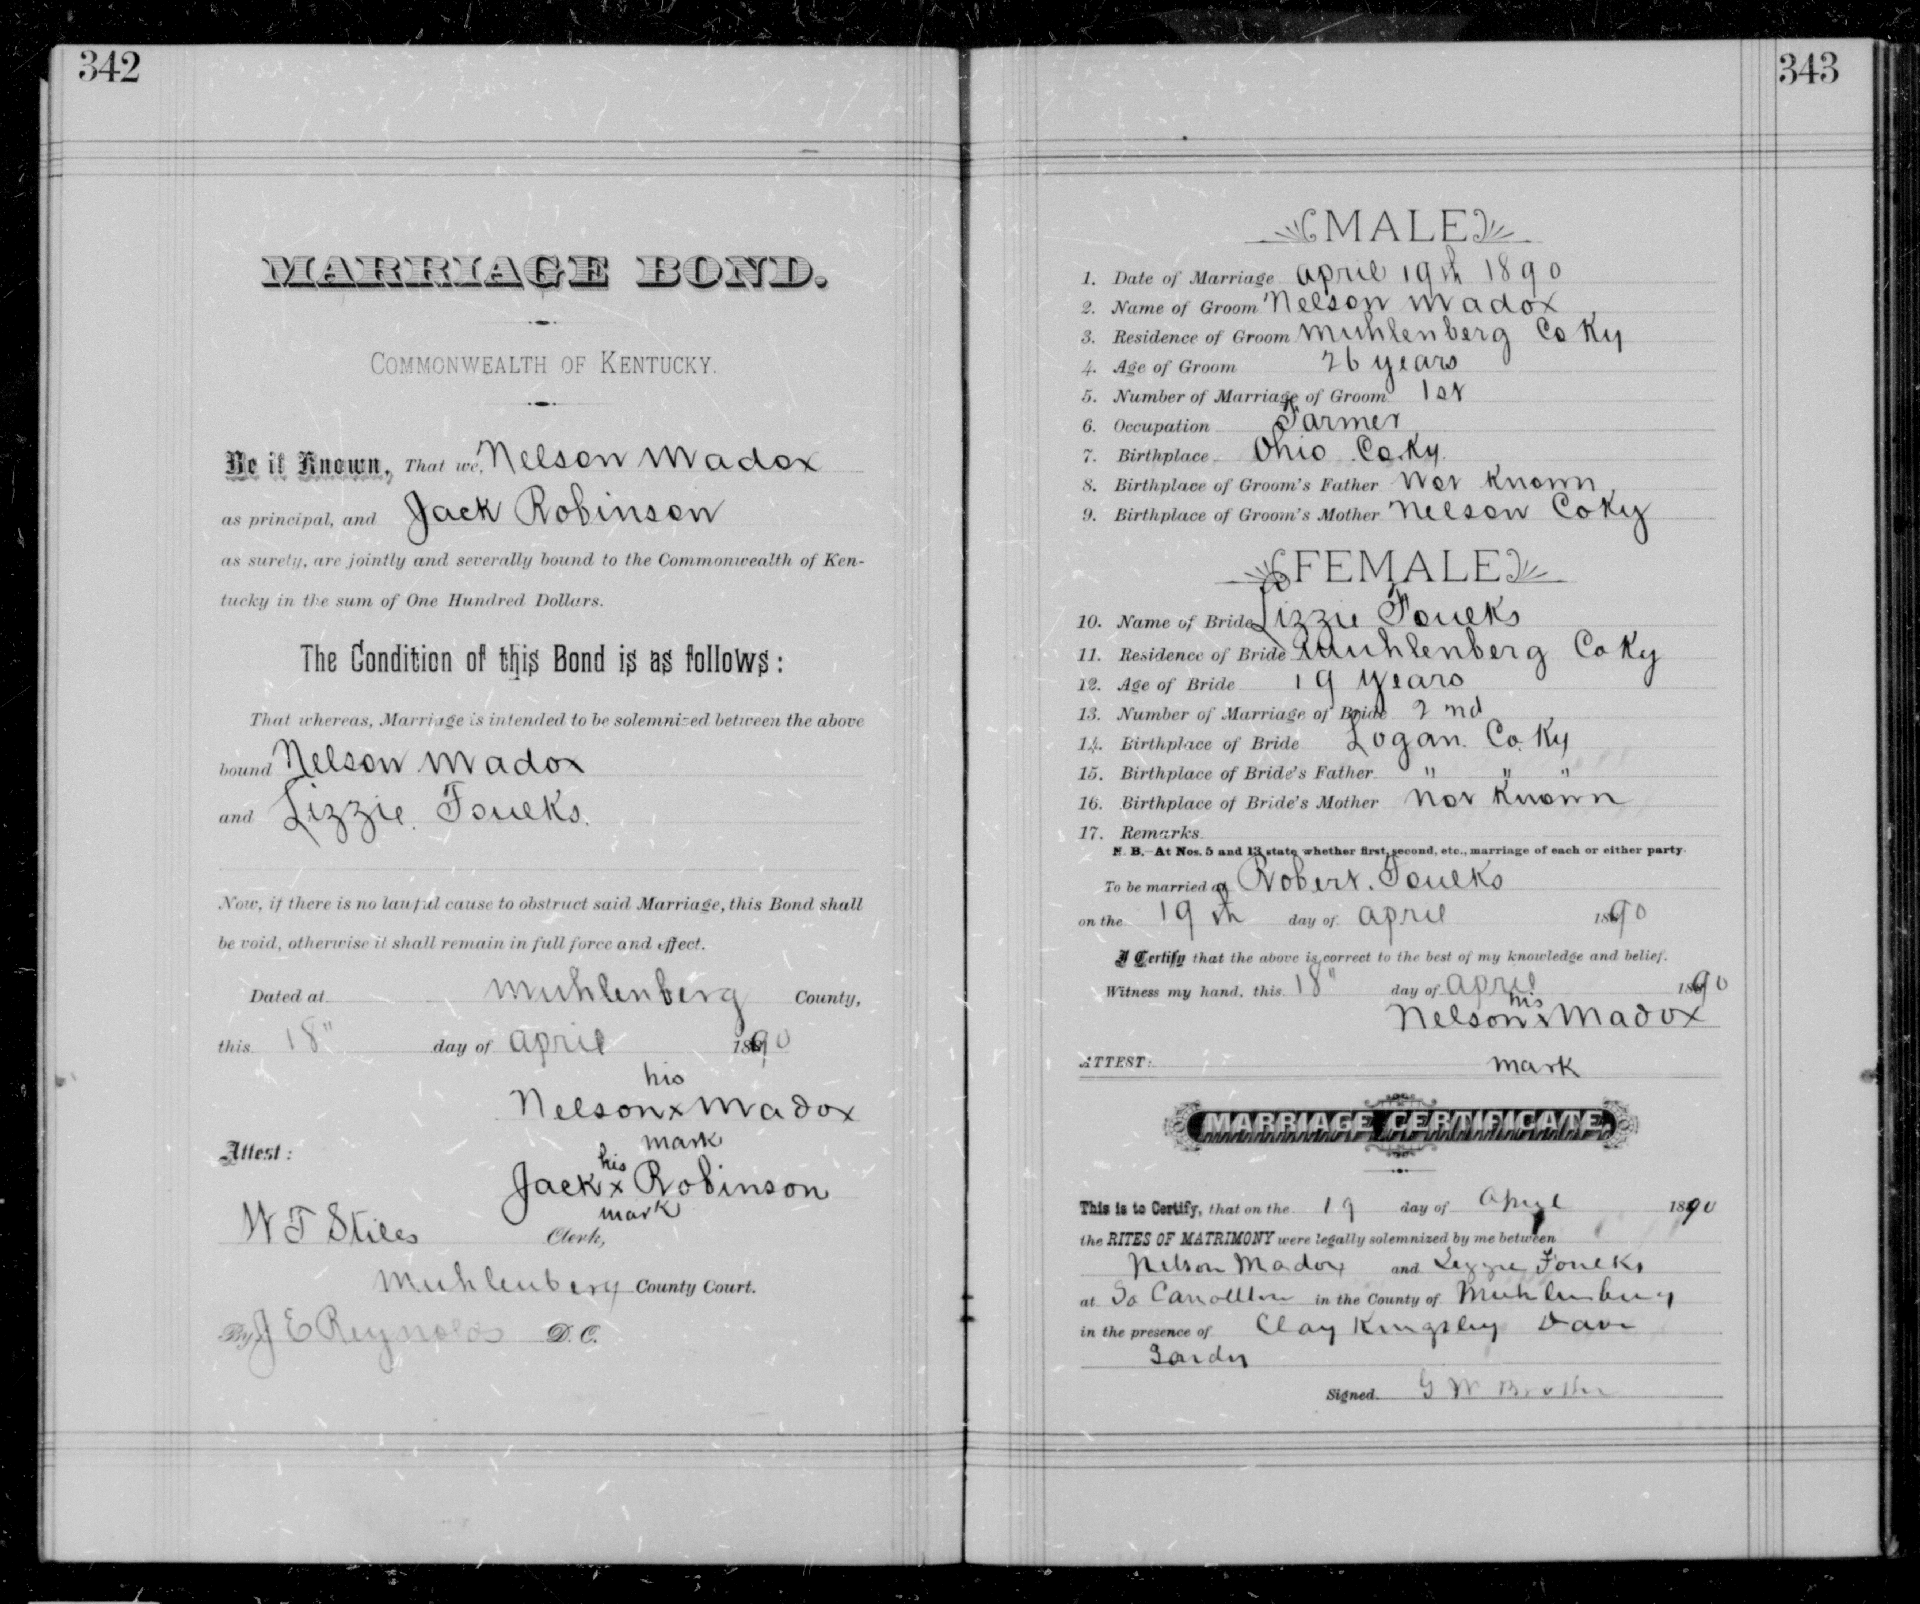 342
MARRIAGE BOND.
COMMONWEALTH OF KENTUCKY.
Be it Known, That we, Nelson Madox
as principal, and Jack Robinson
as surety, are jointly and severally bound to the Commonwealth of Ken-
tucky in the sum of One Hundred Dollars.
The Condition of this Bond is as follows:
That whereas, Marriage is intended to be solemnized between the above
bound Nelson Madox
and Lizzie Foulks.
Now, if there is no lawful cause to obstruct said Marriage, this Bond shall
be void, otherwise it shall remain in full force and effect.
Dated at Muhlenberg County,
this 18" day of April 1890
his
Nelson x Madox
mark
Attest:
his
Jack x Robinson
mark
W T Stiles Clerk,
Muhlenberg County Court.
By J E Reynolds D. C.
343
MALE
1. Date of Marriage April 19th 1890
2. Name of Groom Nelson Madox
3. Residence of Groom Muhlenberg Co Ky
4. Age of Groom 26 years
5. Number of Marriage of Groom 1st
6. Occupation Farmer
7. Birthplace Ohio Co. Ky.
8. Birthplace of Groom's Father Not Known
9. Birthplace of Groom's Mother Nelson Co Ky
FEMALE
10. Name of Bride Lizzie Foulks
11. Residence of Bride Muhlenberg Co Ky
12. Age of Bride 19 years
13. Number of Marriage of Bride 2nd
14. Birthplace of Bride Logan Co. Ky
15. Birthplace of Bride's Father " " "
16. Birthplace of Bride's Mother Not Known
17. Remarks
N. B.—At Nos. 5 and 13 state whether first, second, etc., marriage of each or either party.
To be married at Robert. Foulks
on the 19th day of April 1890
I Certify that the above is correct to the best of my knowledge and belief.
Witness my hand, this 18" day of April 1890
his
Nelson x Madox
ATTEST: mark
MARRIAGE CERTIFICATE.
This is to Certify, that on the 19 day of April 1890
the RITES OF MATRIMONY were legally solemnized by me between
Nelson Madox and Lizzie Foulks
at So Carrollton in the County of Muhlenberg
in the presence of Clay Kingsley Dave
Signed. G W